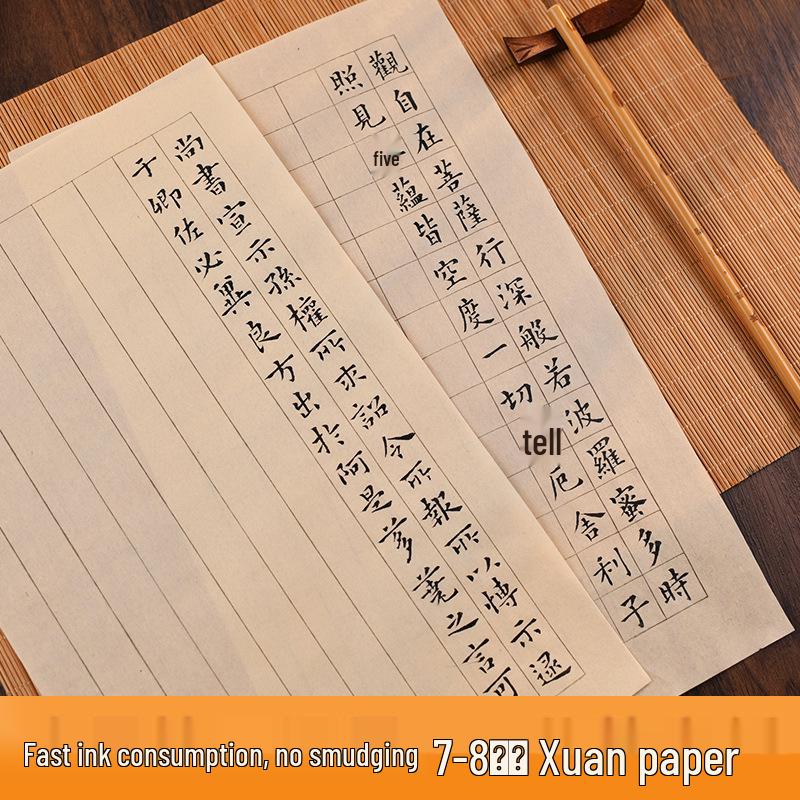 觀自在菩薩行深般若波羅蜜多時
照見five蘊皆空度一切tell厄舍利子
尚書宣示孫權所求詔令所報所以博示逮
于卿佐必冀良方出於阿是芻蕘之言可
Fast ink consumption, no smudging
7-8⍰⍰ Xuan paper